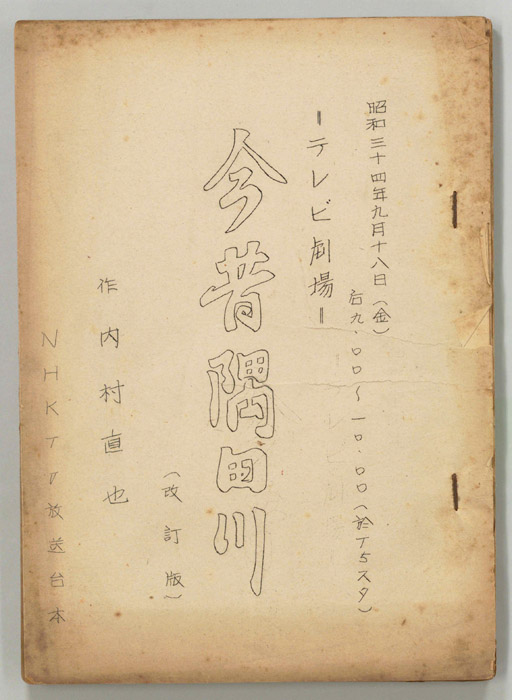 昭和三十四年九月十八日(金)
后九.〇〇~一〇.〇〇(於T5スタ)
=テレビ劇場=
今昔隅田川
(改訂版)
作 内村直也
NHKTV放送台本